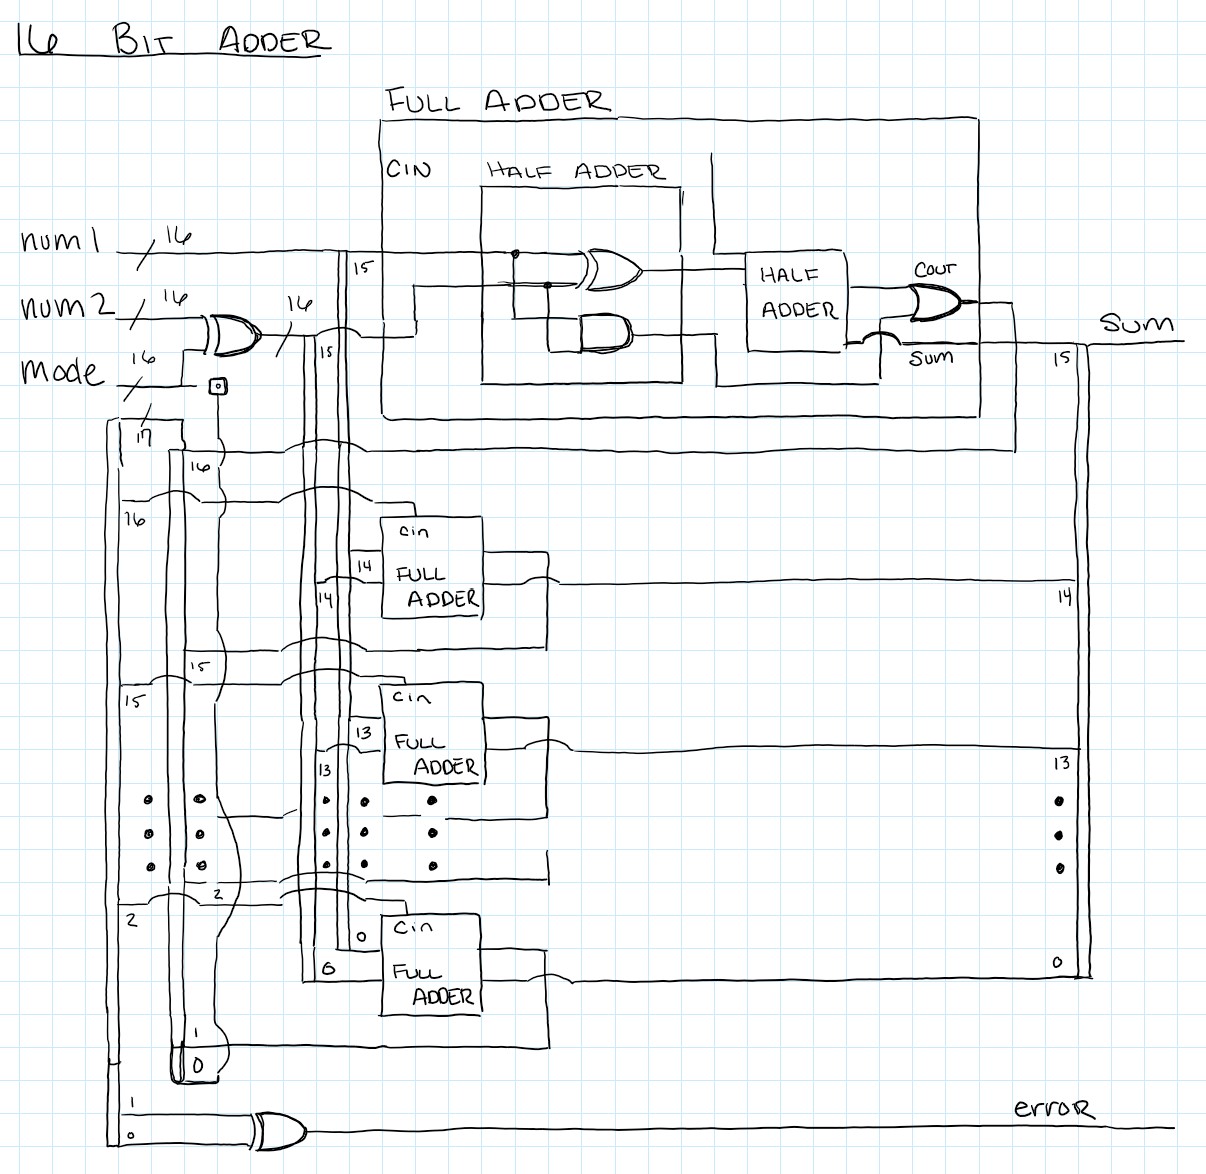 16 BIT ADDER
FULL ADDER
CIN
HALF ADDER
num1
16
15
num2
16
16
15
mode
16
HALF
ADDER
COUT
SUM
SUM
15
17
16
16
cin
FULL
ADDER
14
14
14
15
15
cin
FULL
ADDER
13
13
13
2
2
cin
FULL
ADDER
0
0
0
1
0
1
0
error